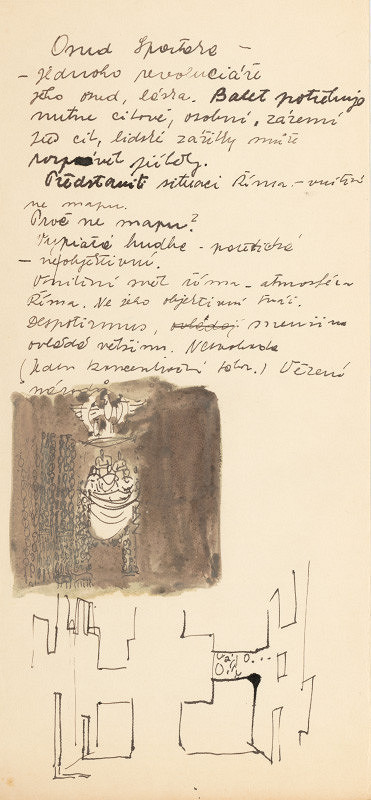 Osud Spartaka –
– Jednoho revoluciáře
jeho osud, láska. Balet potřebuje
nutně citové, osobní, zázemí
Jen cit, lidské zážitky může
rozpívat.
Představiti situaci Říma. – vnitřní
ne mapu.
Proč ne mapu?
hudbe – poetické
– neobjektivní.
Vnitřní svět Říma – atmosféra
Říma. Ne jeho objektivní tvář.
Despotismus, menšina
ovládá většinu. Nesvoboda
(Jeden koncentrační tábor.) Vězení
národů